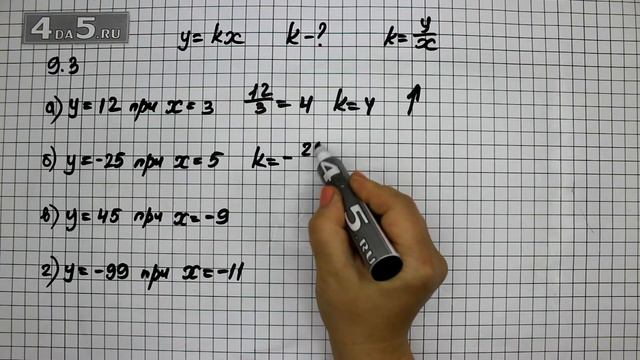 4DA5.RU
y = kx   k - ?   k = y/x
9.3
а) y = 12 при x = 3   12/3 = 4   k = 4   ↑
б) y = -25 при x = 5   k = - 2
в) y = 45 при x = -9
г) y = -99 при x = -11
4 5.RU